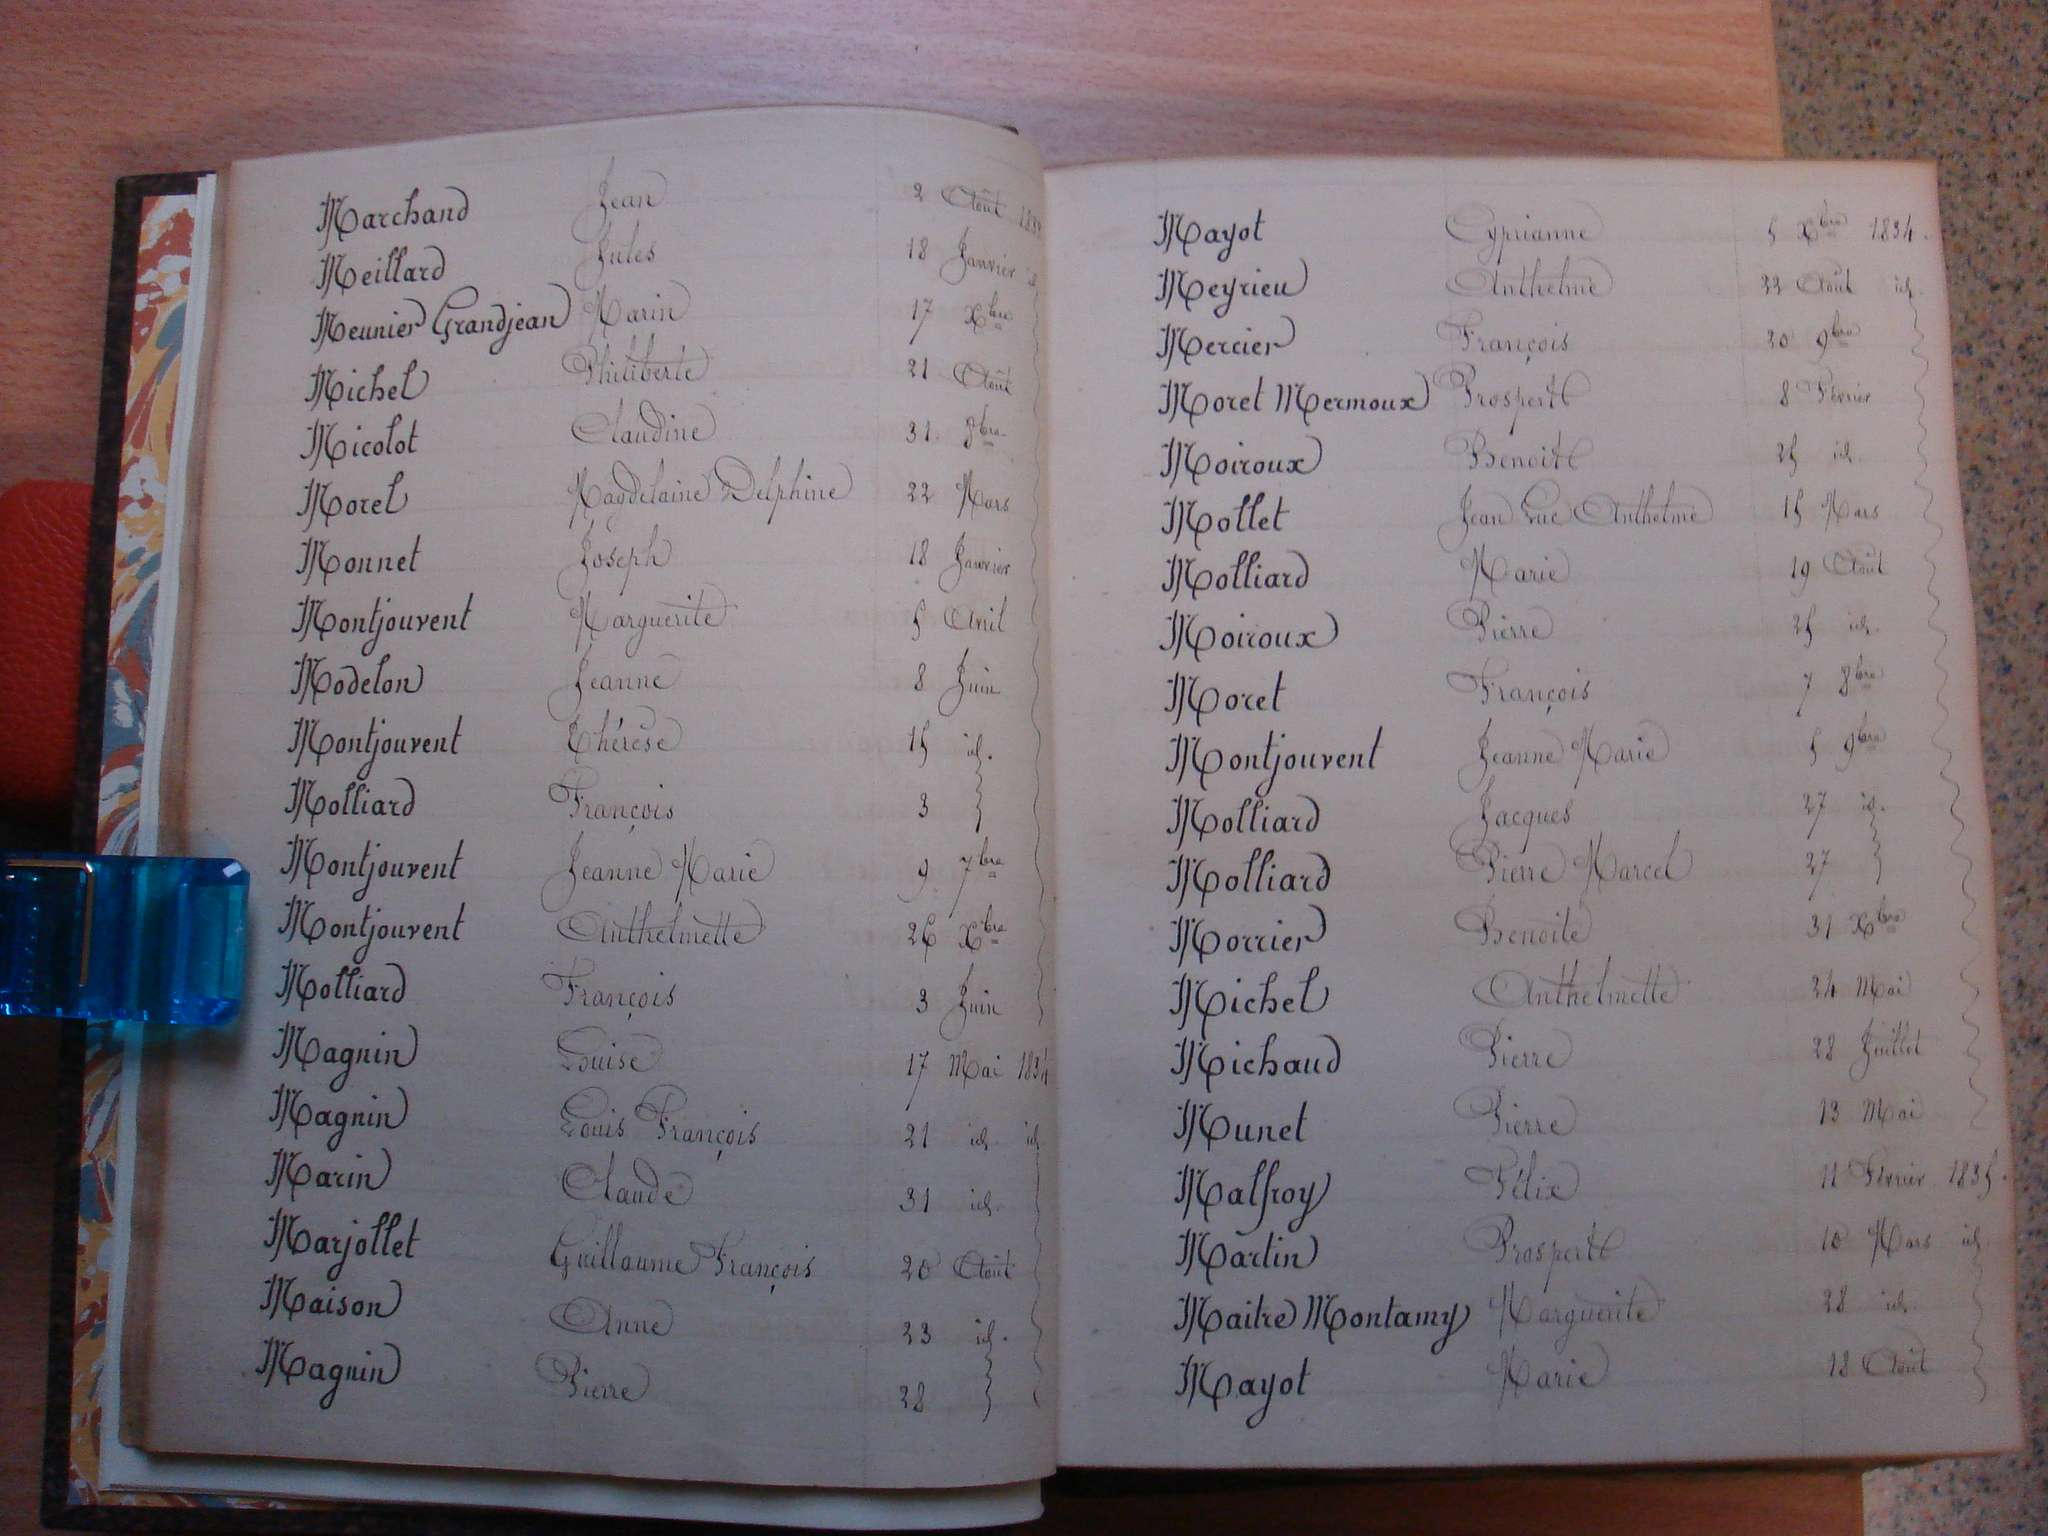 Marchand Jean 2 Août
Meillard Jules 18 Janvier id
Meunier Grandjean Marin 17 Xbre
Michel Philiberte 21 Août
Micolot Claudine 31 8bre
Morel Magdelaine Delphine 22 Mars
Monnet Joseph 18 Janvier
Montjouvent Marguerite 5 Avril
Modelon Jeanne 8 Juin
Montjouvent Thérèse 15 id.
Molliard François 3
Montjouvent Jeanne Marie 9 7bre
Montjouvent Anthelmette 26 Xbre
Molliard François 3 Juin
Magnin Louise 17 Mai 1834
Magnin Louis François 21 id. id
Marin Claude 31 id.
Marjollet Guillaume François 20 Août
Maison Anne 23 id.
Magnin Pierre 28
Mayot Cyprianne 5 Xbre 1834.
Meyrieu Anthelme 22 Août id.
Mercier François 20 9bre
Moret Mermoux Prosperte 8 Février
Moiroux Benoîte 25 id.
Mollet Jean Luc Anthelme 15 Mars
Molliard Marie 19 Août
Moiroux Pierre 25 id.
Moret François 7 8bre
Montjouvent Jeanne Marie 5 9bre
Molliard Jacques 27 id.
Molliard Pierre Marcel 27
Morrier Benoîte 31 Xbre
Michel Anthelmette 24 Mai
Michaud Pierre 28 Juillet
Munet Pierre 13 Mai
Malfroy Félix 11 Février 1835.
Martin Prosperte 10 Mars id.
Maitre Montamy Marguerite 28 id.
Mayot Marie 18 Août